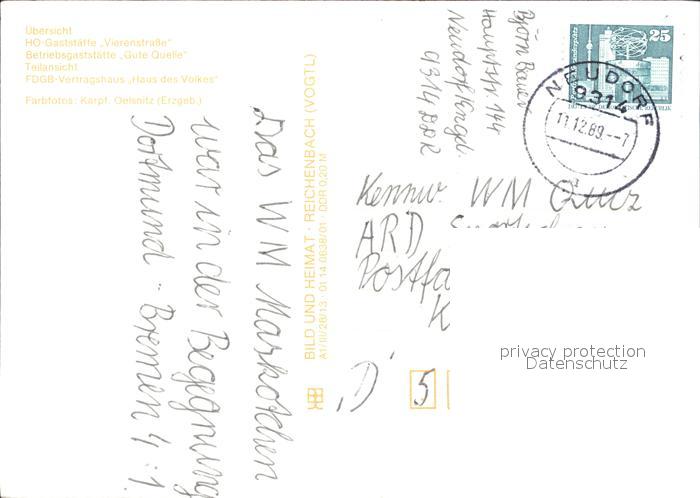 Übersicht
HO-Gaststätte „Vierenstraße"
Betriebsgaststätte „Gute Quelle"
Teilansicht
FDGB-Vertragshaus „Haus des Volkes"
Farbfotos: Karpf, Oelsnitz (Erzgeb.)
Das WM Maskotchen
war in der Begegnung
Dortmund - Bremen 4:1
BILD UND HEIMAT · REICHENBACH (VOGTL)
A1/III/26/13 · 01 14 0638/01 · DDR 0,20 M
Björn Bauer
Hauptstr. 144
Neudorf/Erzgb.
9314 DDR
25
NEUDORF
9314
11.12.89.--7
Kennw. WM Quiz
ARD
Postfa
K
"D"
5
privacy protection
Datenschutz